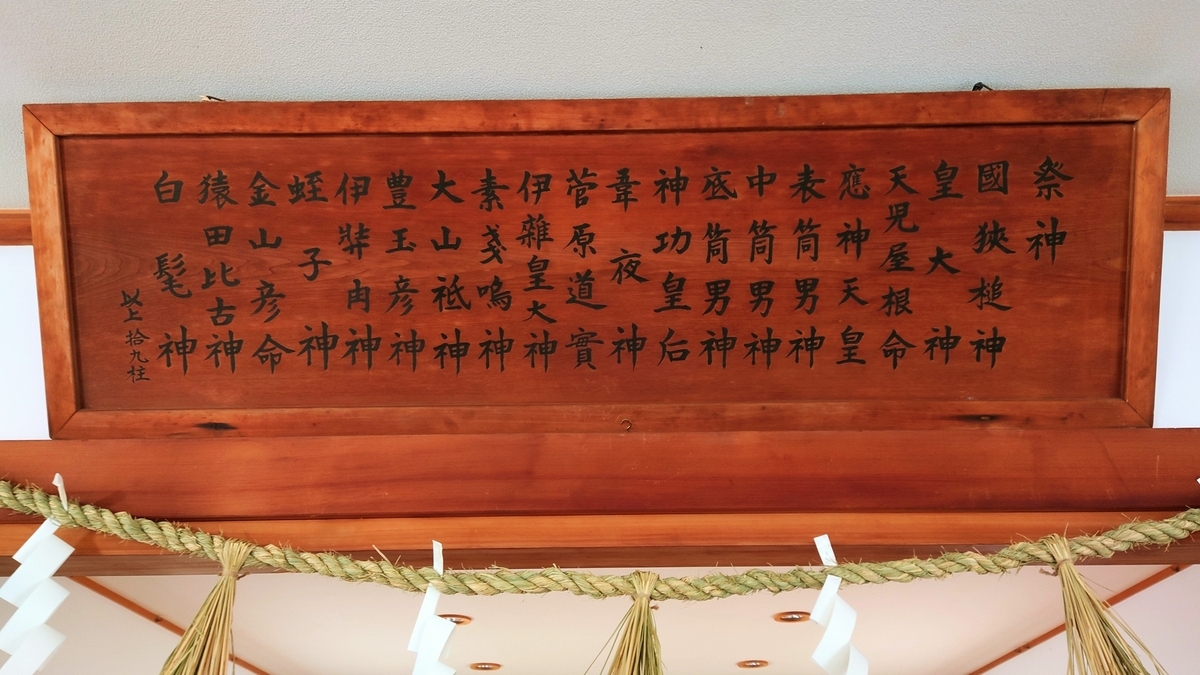 祭神
國狹槌神
皇大神
天児屋根命
應神天皇
表筒男神
中筒男神
底筒男神
神功皇后
韋夜神
菅原道實
伊雜皇大神
素戔嗚神
大山祇神
豊玉彦神
伊弉冉神
蛭子神
金山彦命
猿田比古神
白髦神
以上拾九柱